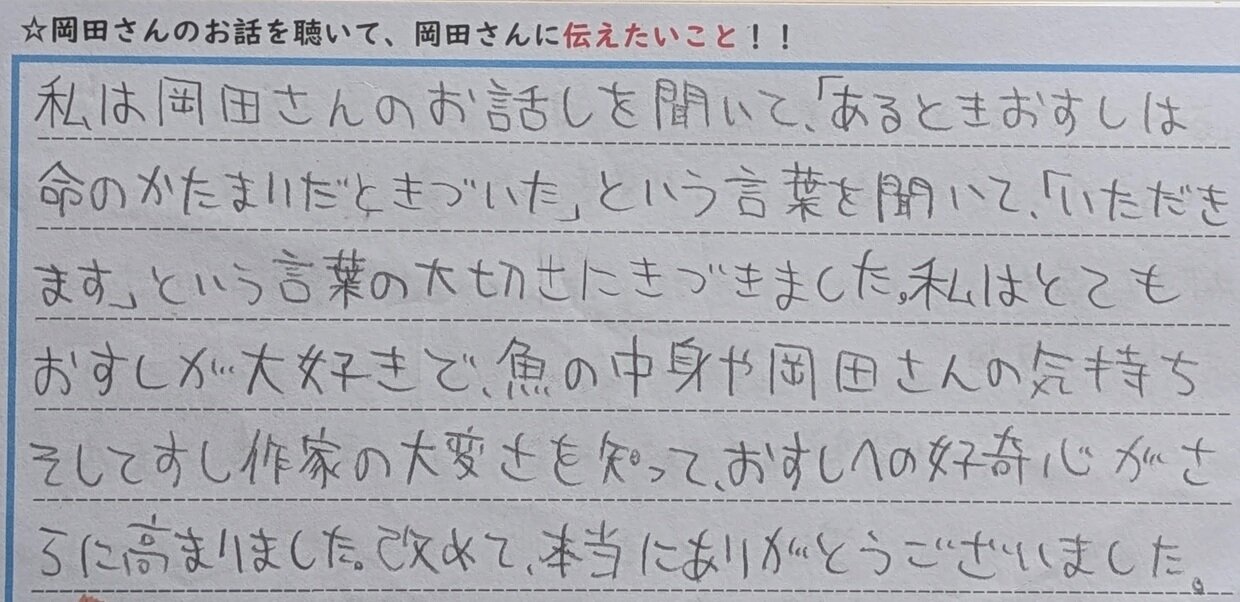 ☆岡田さんのお話を聴いて、岡田さんに伝えたいこと！！
私は岡田さんのお話しを聞いて、「あるときおすしは
命のかたまりだときづいた」という言葉を聞いて、「いただき
ます」という言葉の大切さにきづきました。私はとても
おすしが大好きで、魚の中身や岡田さんの気持ち
そしてすし作家の大変さを知って、おすしへの好奇心がさ
らに高まりました。改めて、本当にありがとうございました。